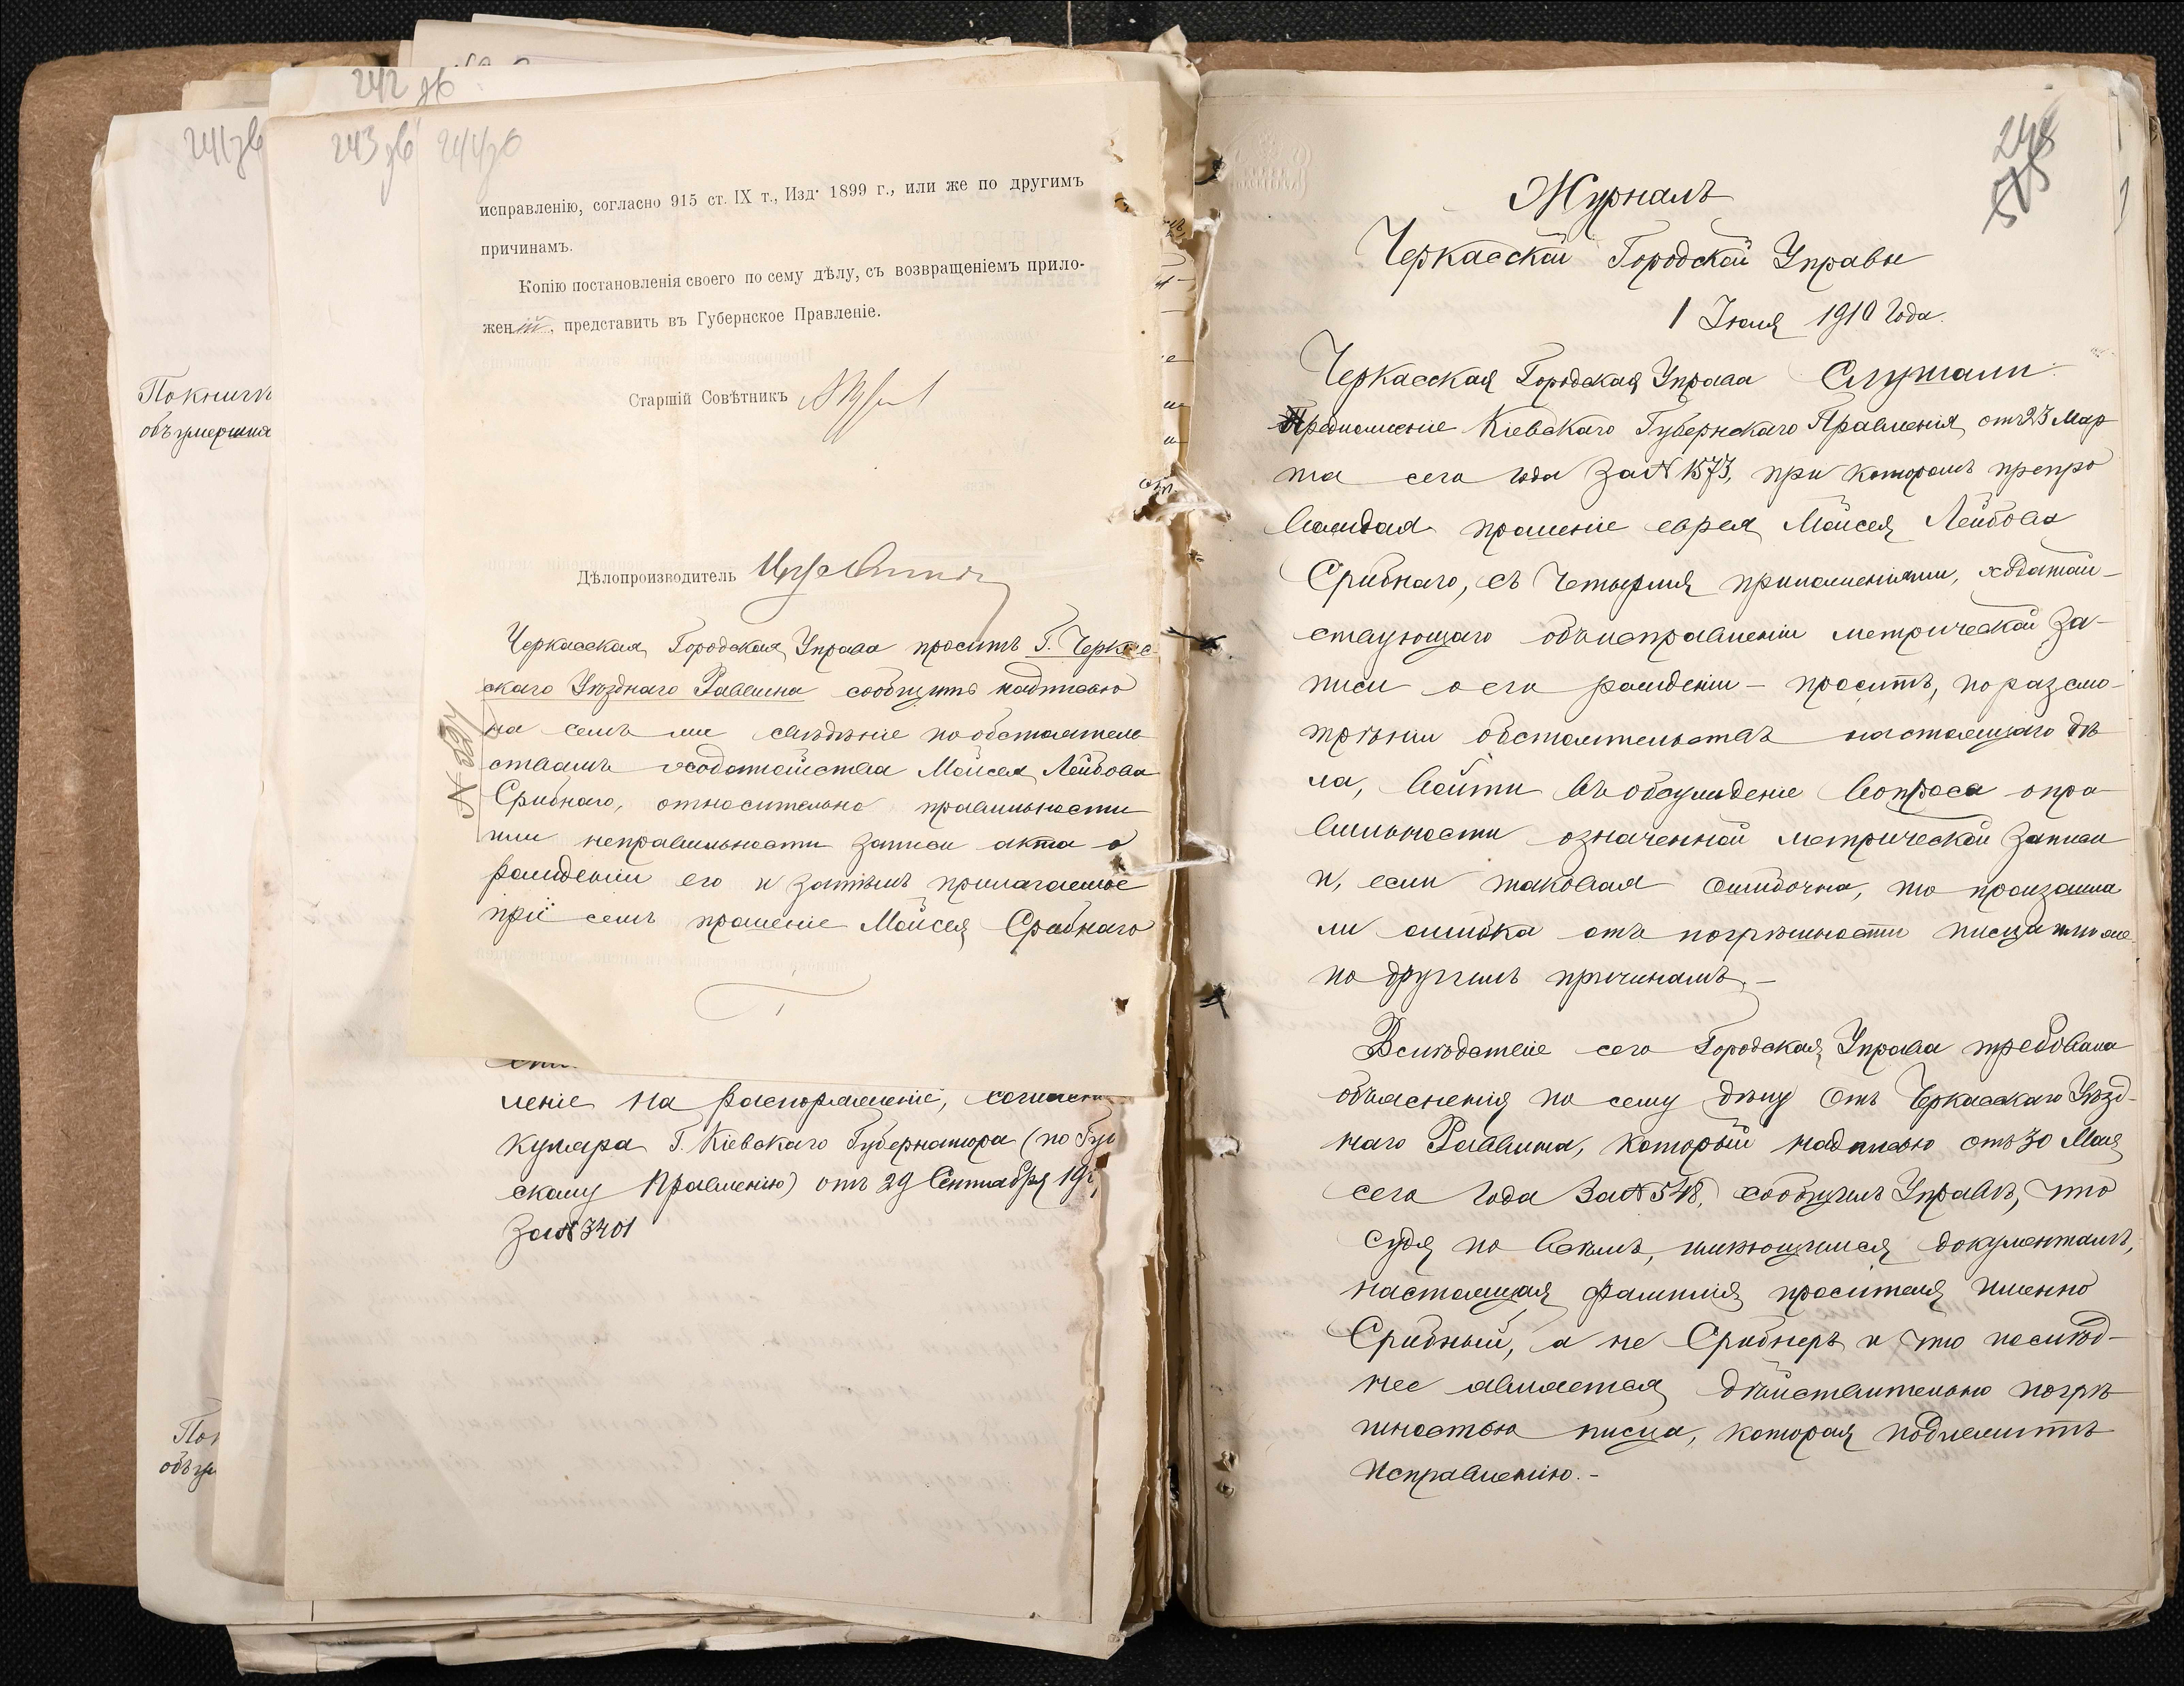 242 об
241 об
243 об 244 об
исправленію, согласно 915 ст. IX т., Изд. 1899 г., или же по другимъ
причинамъ.
Копію постановленія своего по сему дѣлу, съ возвращеніемъ прило-
женій, представить въ Губернское Правленіе.
Старшій Совѣтникъ
Дѣлопроизводитель
Черкасская Городская Управа проситъ Г. Черкас
скаго Уѣзднаго Раввина сообщить надписью
на семъ же свѣдѣніе по обстоятель
ствамъ ходатайства Мойсея Лейбова
Срибнаго, относительно правильности
или неправильности записи акта о
рожденіи его и затѣмъ прилагаемое
при семъ прошеніе Мойсея Срибнаго
леніе на распоряженіе, согласно
куляра Г. Кіевскаго Губернатора (по Губ
скому Правленію) отъ 29 Сентября 19
за № 3401
По книгѣ
объ умершихъ
248
Журналъ
Черкасской Городской Управы
1 Іюля 1910 года.
Черкасская Городская Управа Слушали:
Предложеніе Кіевскаго Губернскаго Правленія, отъ 23 Мар
та сего года за № 1573, при которомъ препро
вождая прошеніе еврея Мойсея Лейбова
Срибнаго, съ четырмя приложеніями, ходатай-
ствующаго объ исправленіи метрической за-
писи о его рожденіи – проситъ, по разсмо-
трѣніи обстоятельствъ настоящаго дѣ
ла, войти въ обсужденіе вопроса о пра
вильности означенной метрической записи
и, если таковая ошибочна, то произошла
ли ошибка отъ погрѣшности писца или же
по другимъ причинамъ. –
Вслѣдствіе сего Городская Управа требовала
объясненія по сему дѣлу отъ Черкасскаго Уѣзд-
наго Раввина, который надписью отъ 30 Мая
сего года за № 548, сообщилъ Управѣ, что
судя по всѣмъ, имѣющимся документамъ,
настоящая фамилія просителя именно
Срибный, а не Срибнеръ и что послѣд-
нее является дѣйствительно погрѣ
шностью писца, которая подлежитъ
исправленію. –